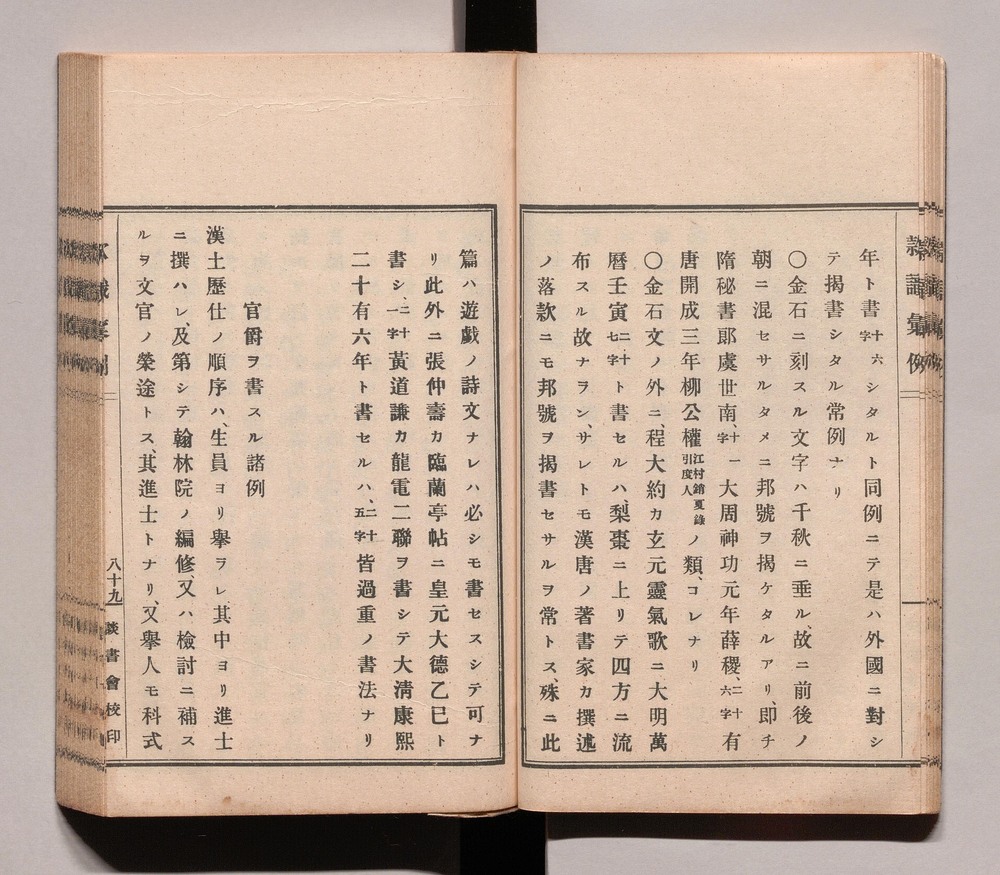 年ト書十六字シタルト同例ニテ是ハ外國ニ對シ
テ揭書シタル常例ナリ
〇金石ニ刻スル文字ハ千秋ニ垂ル、故ニ前後ノ
朝ニ混セサルタメニ邦號ヲ揭ケタルアリ、即チ
隋秘書郎虞世南、十一字大周神功元年薛稷、二十六字有
唐開成三年柳公權江村銷夏錄引度人ノ類、コレナリ
〇金石文ノ外ニ、程大約カ玄元靈氣歌ニ大明萬
曆壬寅二十七字ト書セルハ、梨棗ニ上リテ四方ニ流
布スル故ナヲン、サレトモ漢唐ノ著書家カ撰述
ノ落款ニモ邦號ヲ揭書セサルヲ常トス、殊ニ此
篇ハ遊戯ノ詩文ナレハ必シモ書セスシテ可ナ
リ此外ニ張仲壽カ臨蘭亭帖ニ皇元大德乙巳ト
書シ、二十一字黃道謙カ龍電二聯ヲ書シテ大淸康熙
二十有六年ト書セルハ、二十五字皆過重ノ書法ナリ
官爵ヲ書スル諸例
漢土歷仕ノ順序ハ、生員ヨリ擧ヲレ其中ヨリ進士
ニ撰ハレ、及第シテ翰林院ノ編修、又ハ檢討ニ補ス
ルヲ文官ノ榮途トス、其進士トナリ、又擧人モ科式
八十九
談書會校印